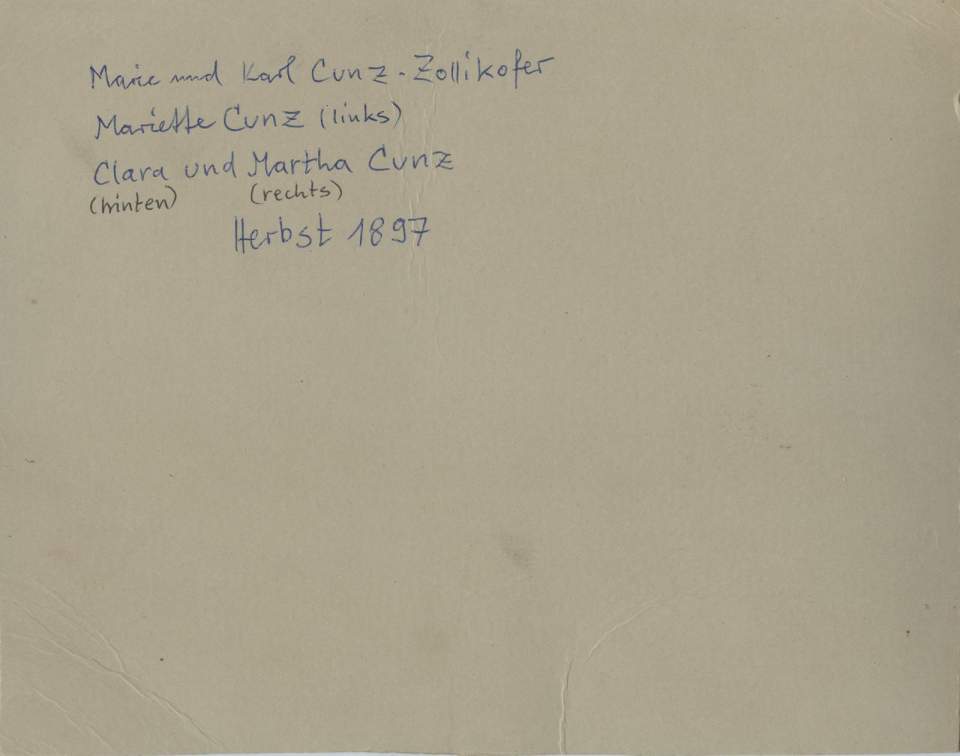 Marie und Karl Cunz-Zollikofer
Mariette Cunz (links)
Clara und Martha Cunz
(hinten) (rechts)
Herbst 1897